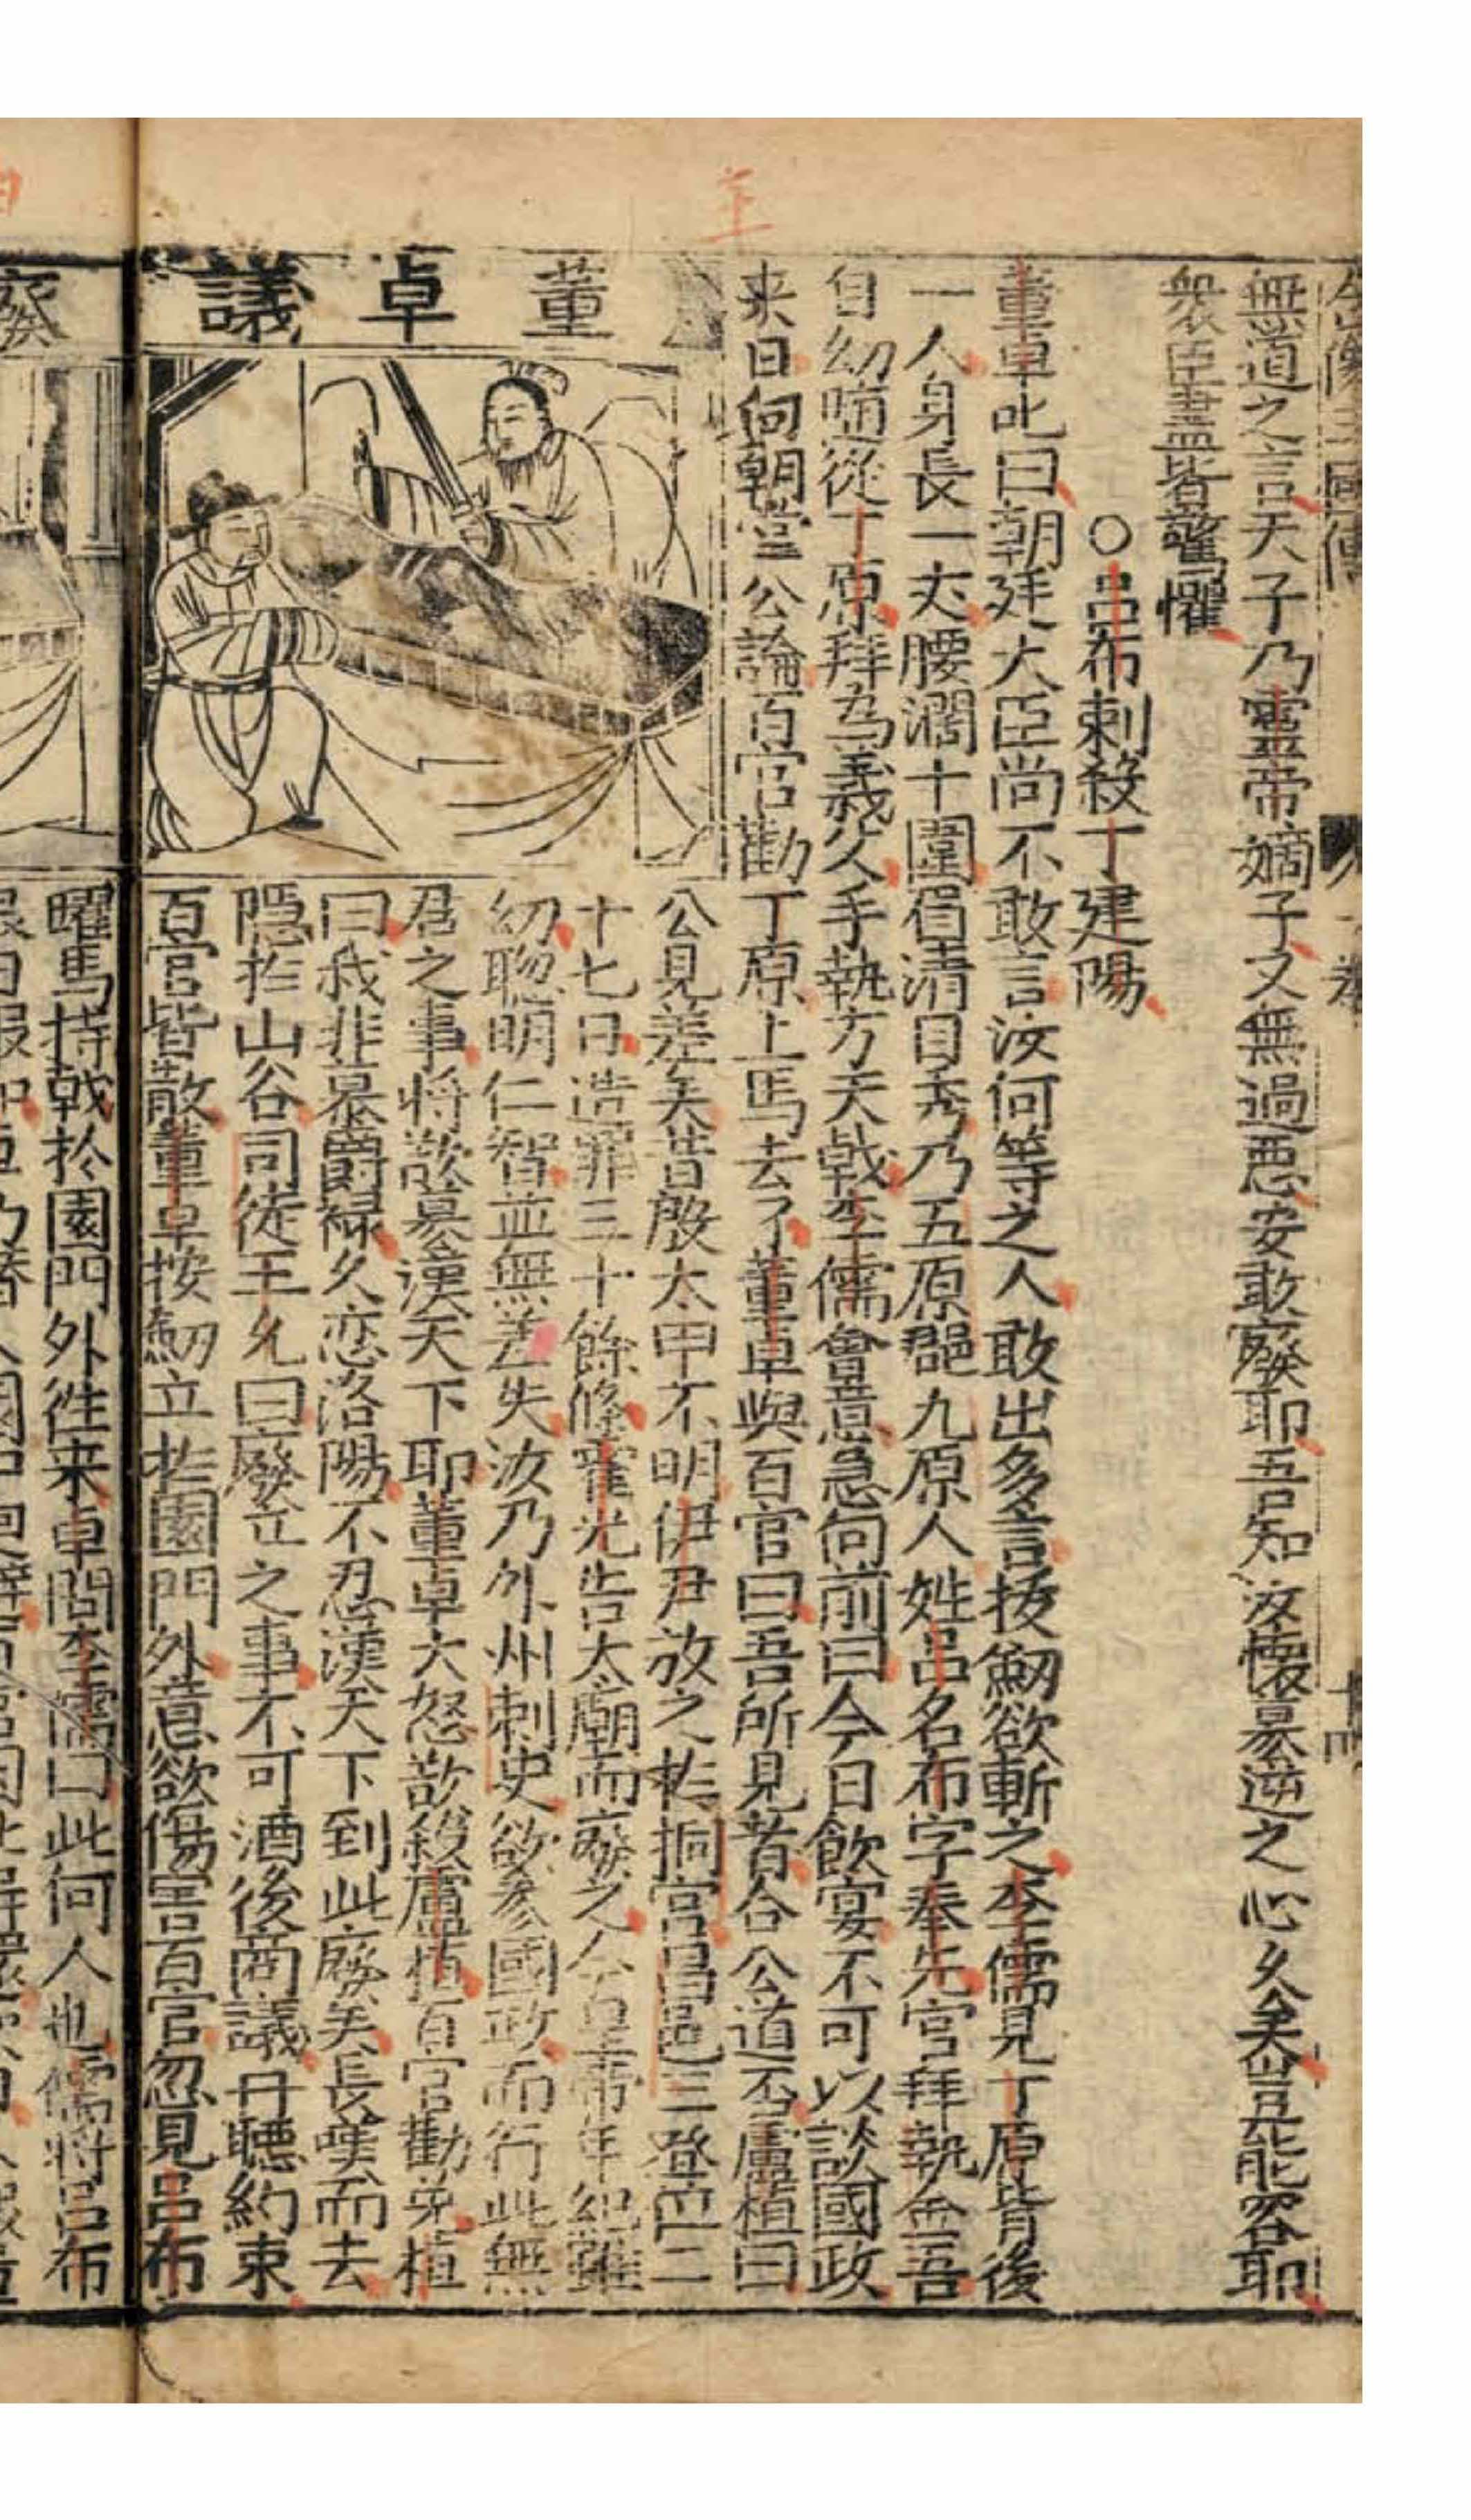 無道之言天子乃靈帝嫡子又無過悪安敢廢耶吾知汝懷篡逆之心久矣豈能容耶
衆臣盡皆驚懼
○呂布刺殺丁建陽
董卓叱曰朝廷大臣尚不敢言汝何等之人敢出多言拔劒欲斬之李儒見丁原背後
一人身長一丈腰濶十圍眉清目秀乃五原郡九原人姓呂名布字奉先官拜執金吾
自幼隨從丁原拜為義父手執方天戟李儒會意急向前曰今日飲宴不可以談國政
来日向朝堂公論百官勸丁原上馬去了董卓與百官曰吾所見者合公道否盧植曰
董卓議
公見差矣昔殷太甲不明伊尹放之於桐宮昌邑王登位二
十七日造罪三十餘條霍光告太廟而廢之今皇帝年紀雖
幼聰明仁智並無差失汝乃外州刺史欲參國政而行此無
君之事将欲篡漢天下耶董卓大怒欲殺盧植百官勸免植
曰我非慕爵祿久恋洛陽不忍漢天下到此廢矣長嘆而去
隱於山谷司徒王允曰廢立之事不可酒後商議丹聽約束
百官皆散董卓按劒立於園門外意欲傷害百官忽見呂布
廢
躍馬持戟於園門外徃来卓問李儒曰此何人也儒将呂布